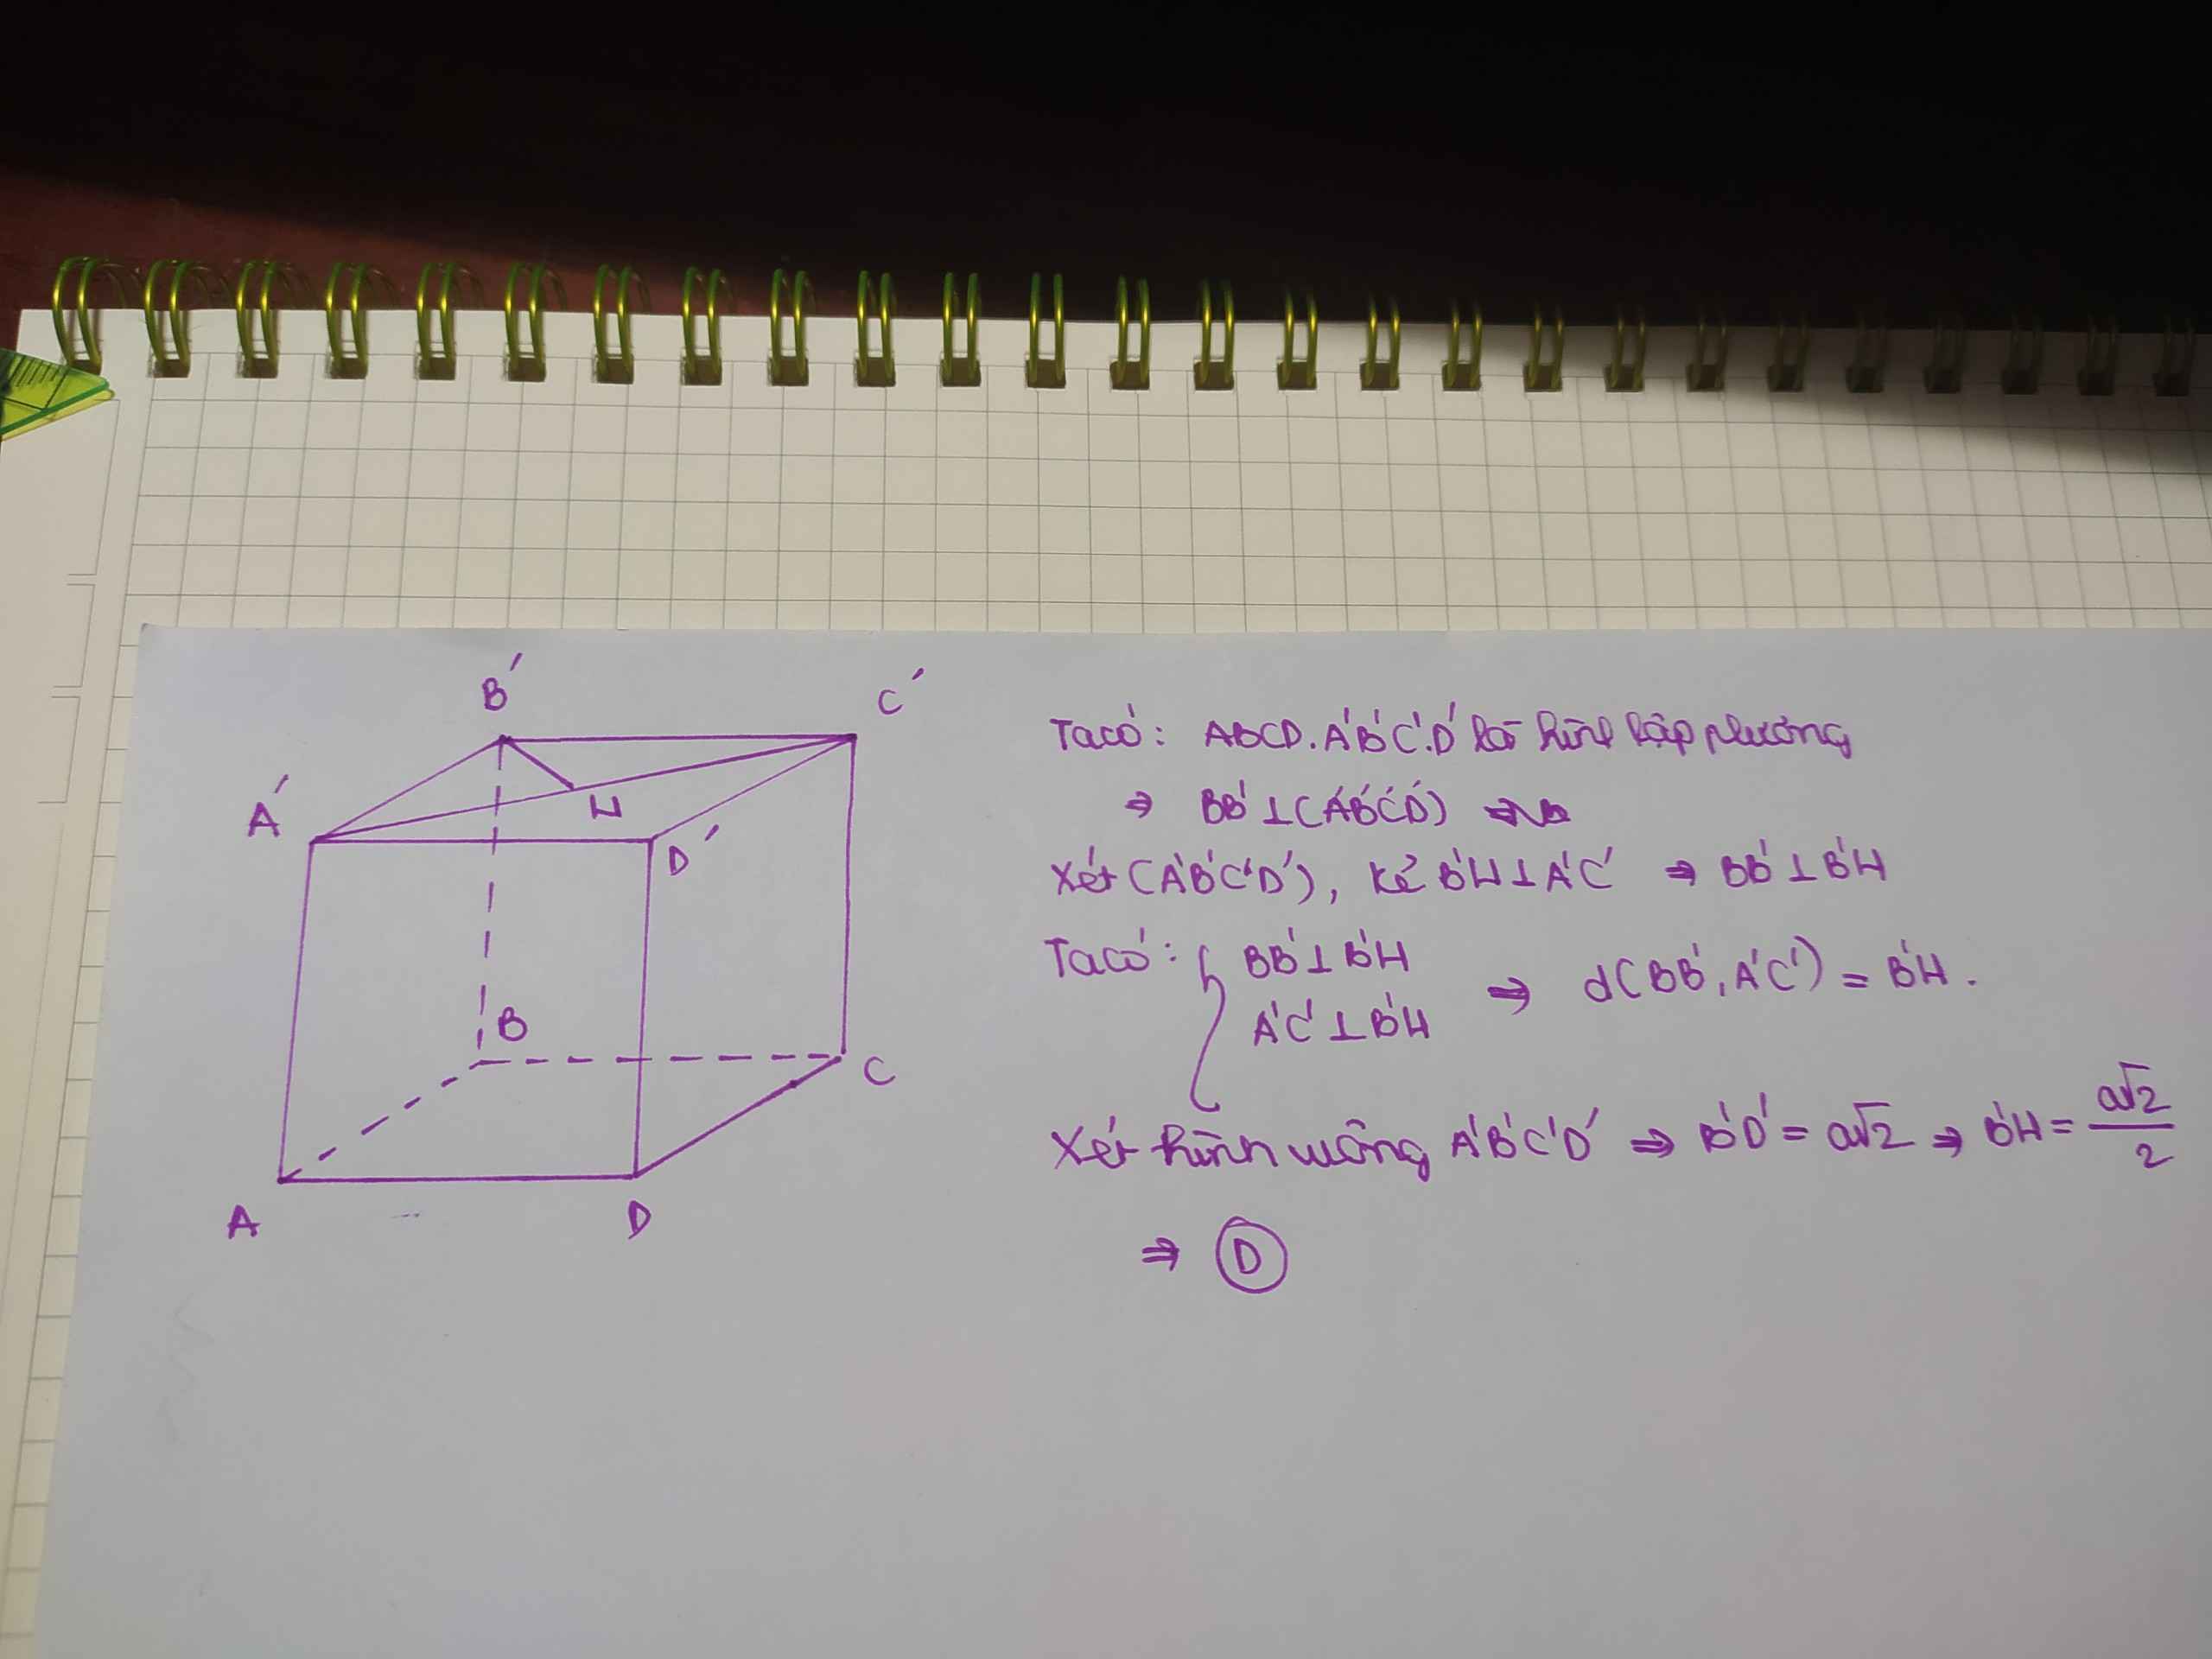 B'
C'
A'
H
D'
B
C
A
D
Ta có: ABCD.A'B'C'.D' là hình lập phương
⇒ BB' ⊥ (A'B'C'D')
Xét (A'B'C'D'), kẻ B'H ⊥ A'C' ⇒ BB' ⊥ B'H
Ta có: { BB' ⊥ B'H
A'C' ⊥ B'H
⇒ d(BB', A'C') = B'H.
Xét hình vuông A'B'C'D' ⇒ B'D' = a√2 ⇒ B'H = a√2/2
⇒ D